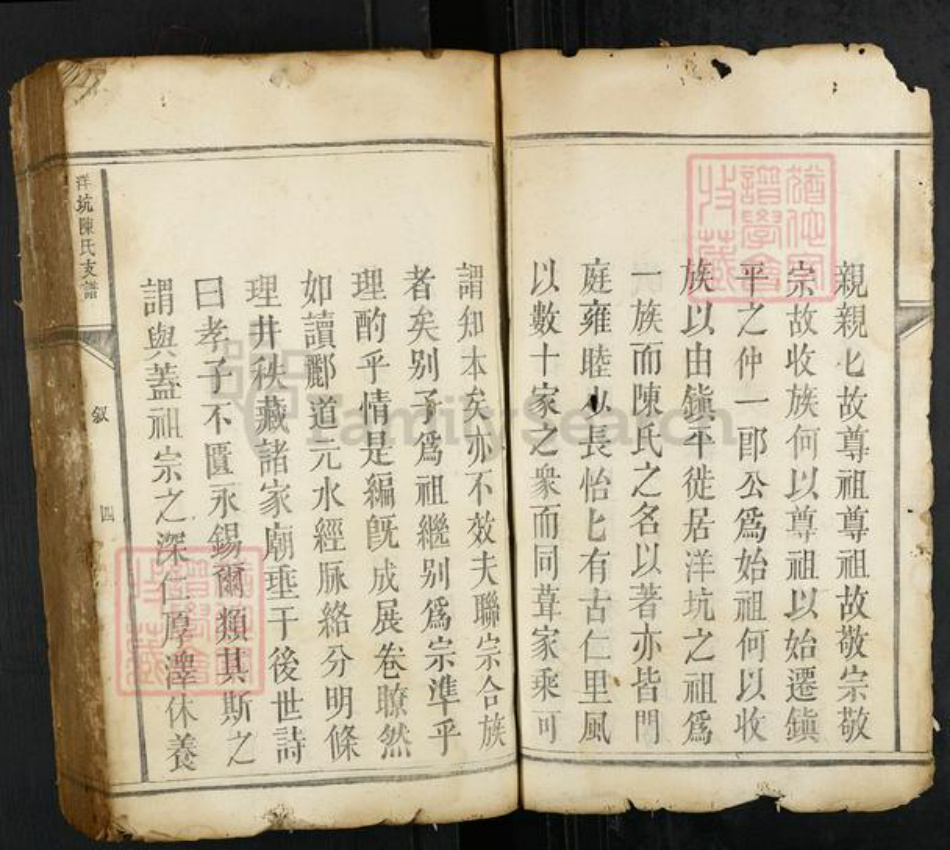 親親匕故尊祖尊祖故敬宗敬
宗故收族何以尊祖以始遷鎮
平之仲一郎公為始祖何以收
族以由鎮平徙居洋坑之祖為
一族而陳氏之名以著亦皆門
庭雍睦少長怡匕有古仁里風
以數十家之衆而同葺家乘可
謂知本矣亦不效夫聯宗合族
者矣别子為祖繼别為宗準乎
理酌乎情是編既成展卷瞭然
如讀酈道元水經脉絡分明條
理井秩藏諸家廟垂于後世詩
曰孝子不匱永錫爾類其斯之
謂與蓋祖宗之深仁厚澤休養
洋坑陳氏支譜
叙
四
猶他家
譜學會
收藏
猶他家
譜學會
收藏
FamilySearch